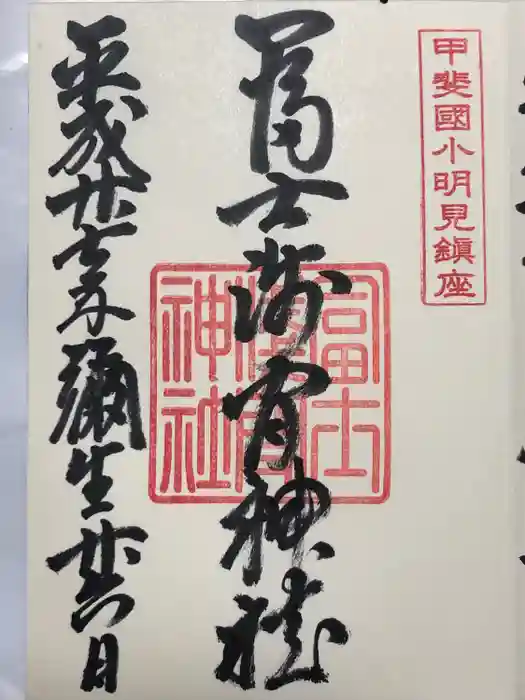 甲斐國小明見鎮座
冨士浅間神社
冨士
淺間
神社
平成廿七年彌生廿六日